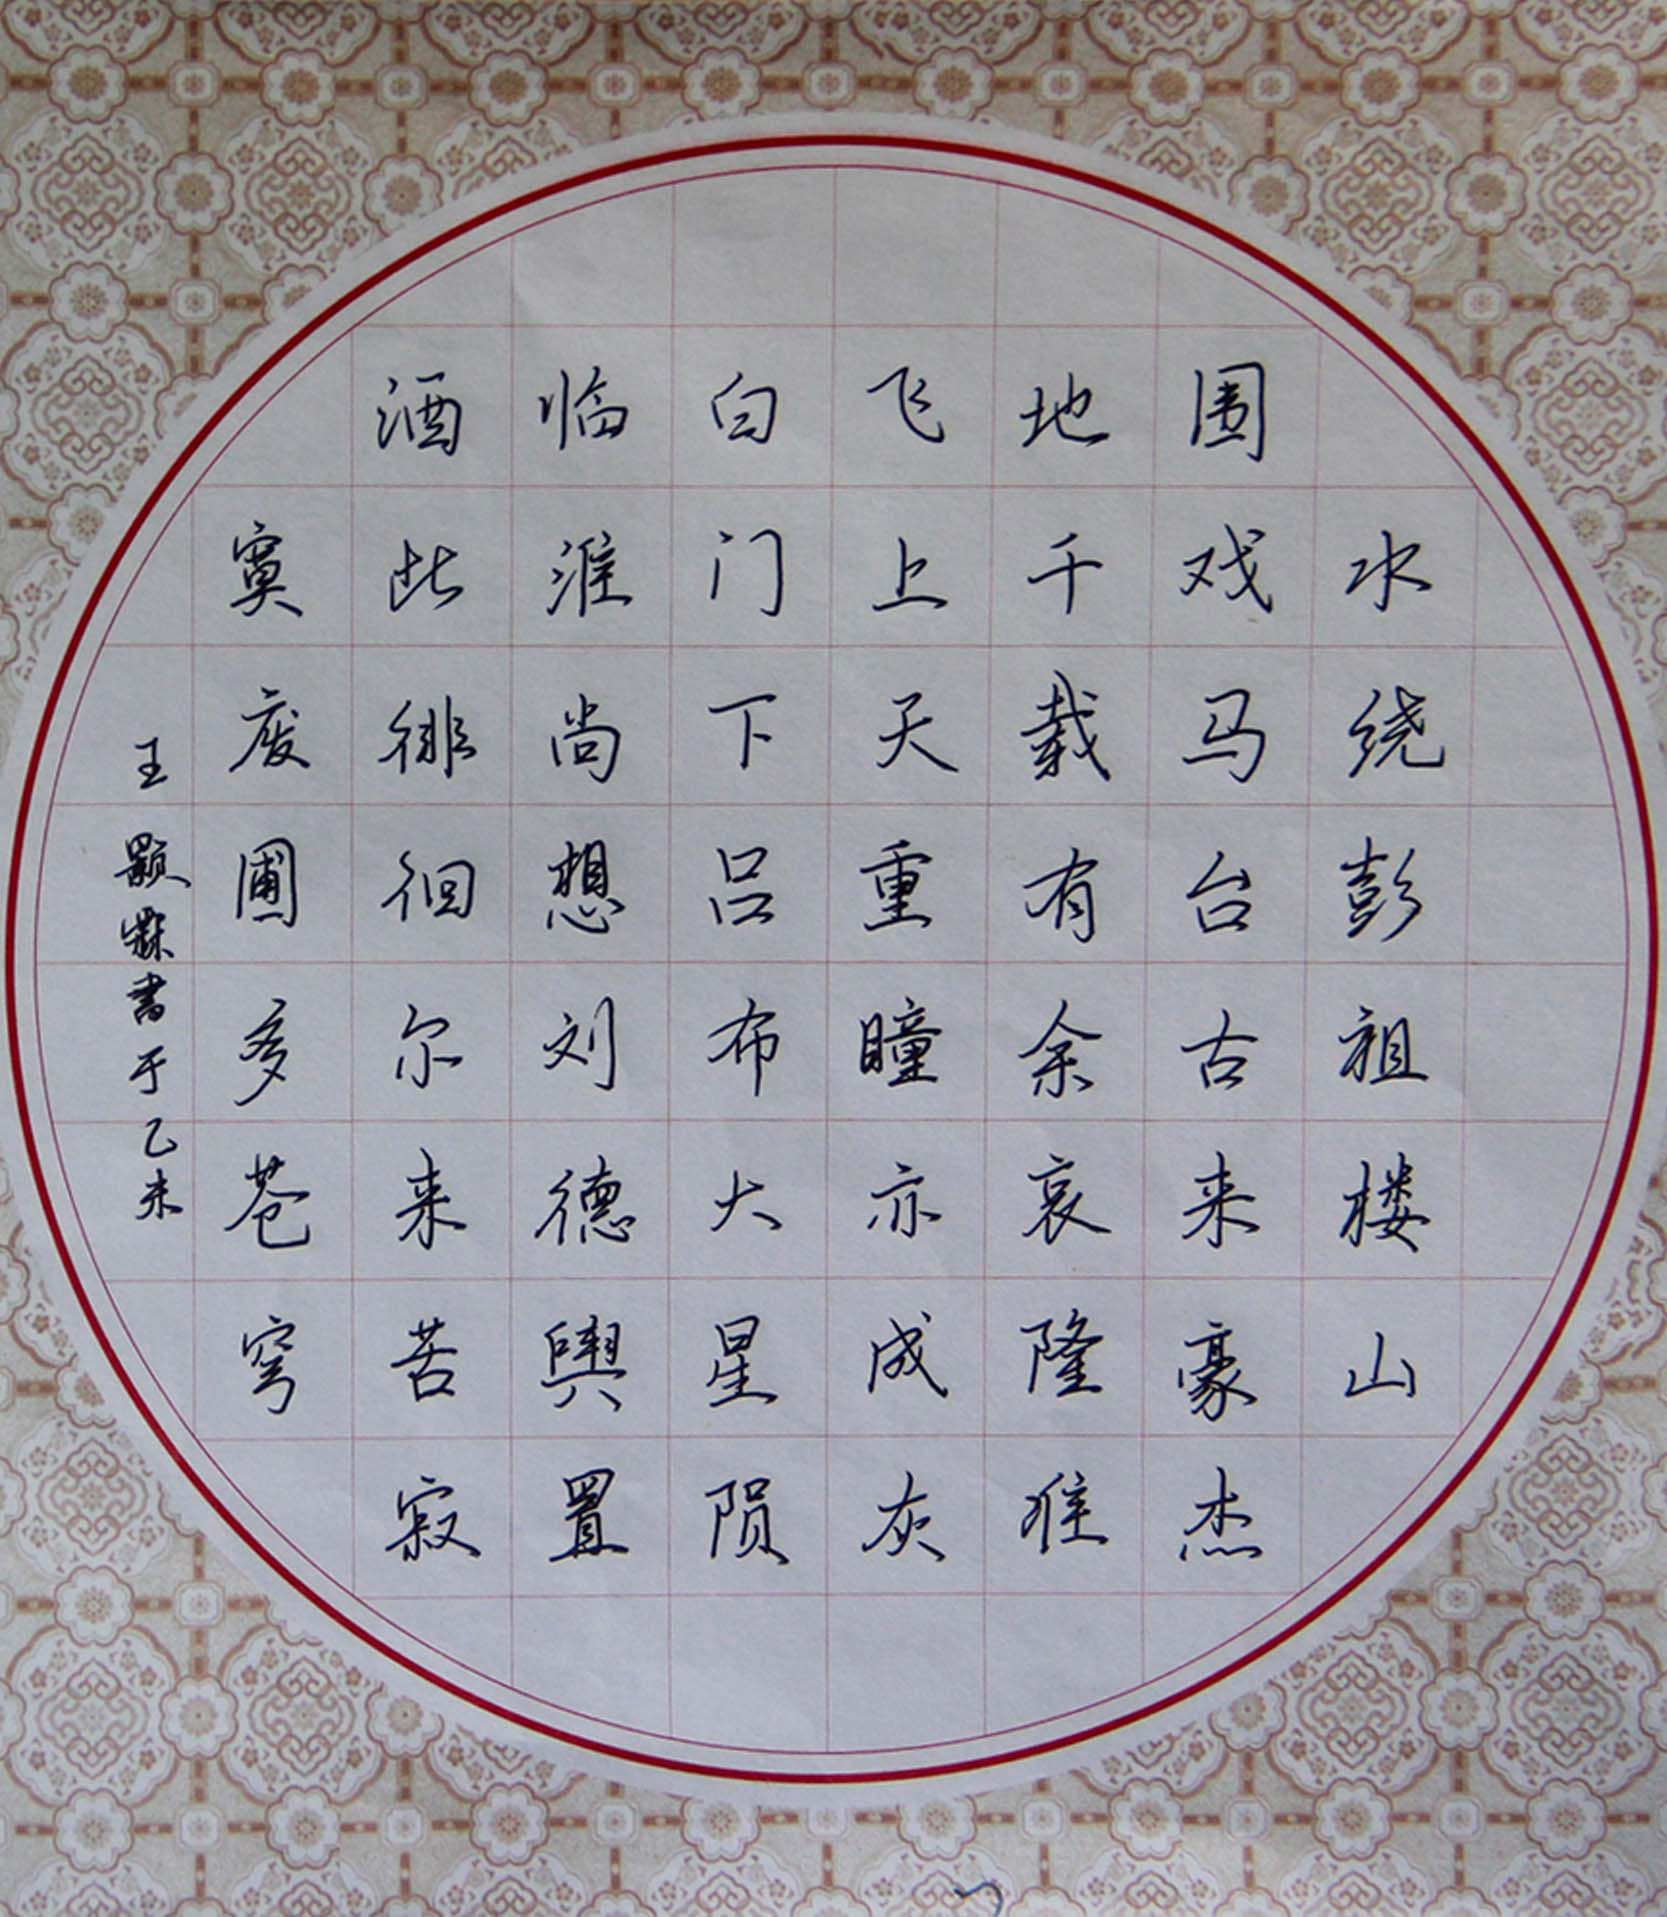 水绕彭祖楼山
围戏马台古来豪杰
地千载有余哀隆准
飞上天重瞳亦成灰
白门下吕布大星陨
临淮尚想刘德舆置
酒此徘徊尔来苦寂
寞废圃多苍穹
王 书于乙未